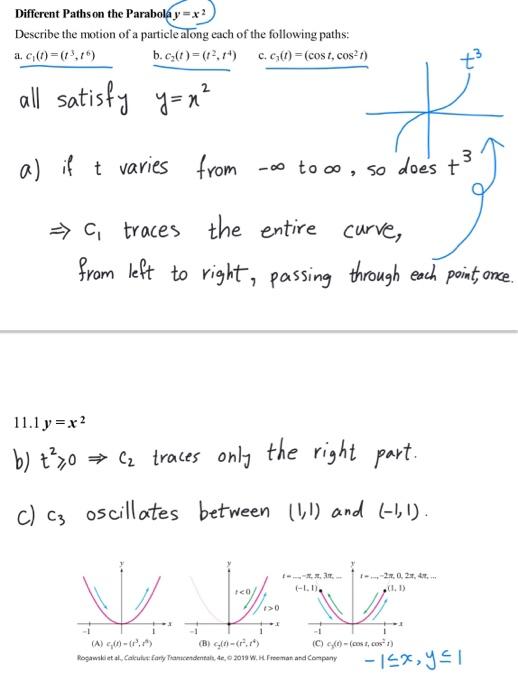 Different Paths on the Parabola y = x²
Describe the motion of a particle along each of the following paths:
a. c₁(t) = (t³, t⁶) b. c₂(t) = (t², t⁴) c. c₃(t) = (cos t, cos² t)
t³
all satisfy y=x²
a) if t varies from -∞ to ∞, so does t³
⇒ c₁ traces the entire curve,
from left to right, passing through each point once.
11.1 y = x²
b) t²⩾0 ⇒ c₂ traces only the right part.
c) c₃ oscillates between (1,1) and (-1,1).
y y y
t = ..., -π, π, 3π, ... t = ..., -2π, 0, 2π, 4π, ...
(-1, 1) (1, 1)
t<0
t>0
x x x
-1 1 -1 1 -1 1
(A) c₁(t) = (t³, t⁶) (B) c₂(t) = (t², t⁴) (C) c₃(t) = (cos t, cos² t)
Rogawski et al., Calculus: Early Transcendentals, 4e, © 2019 W. H. Freeman and Company
-1≤x, y≤1